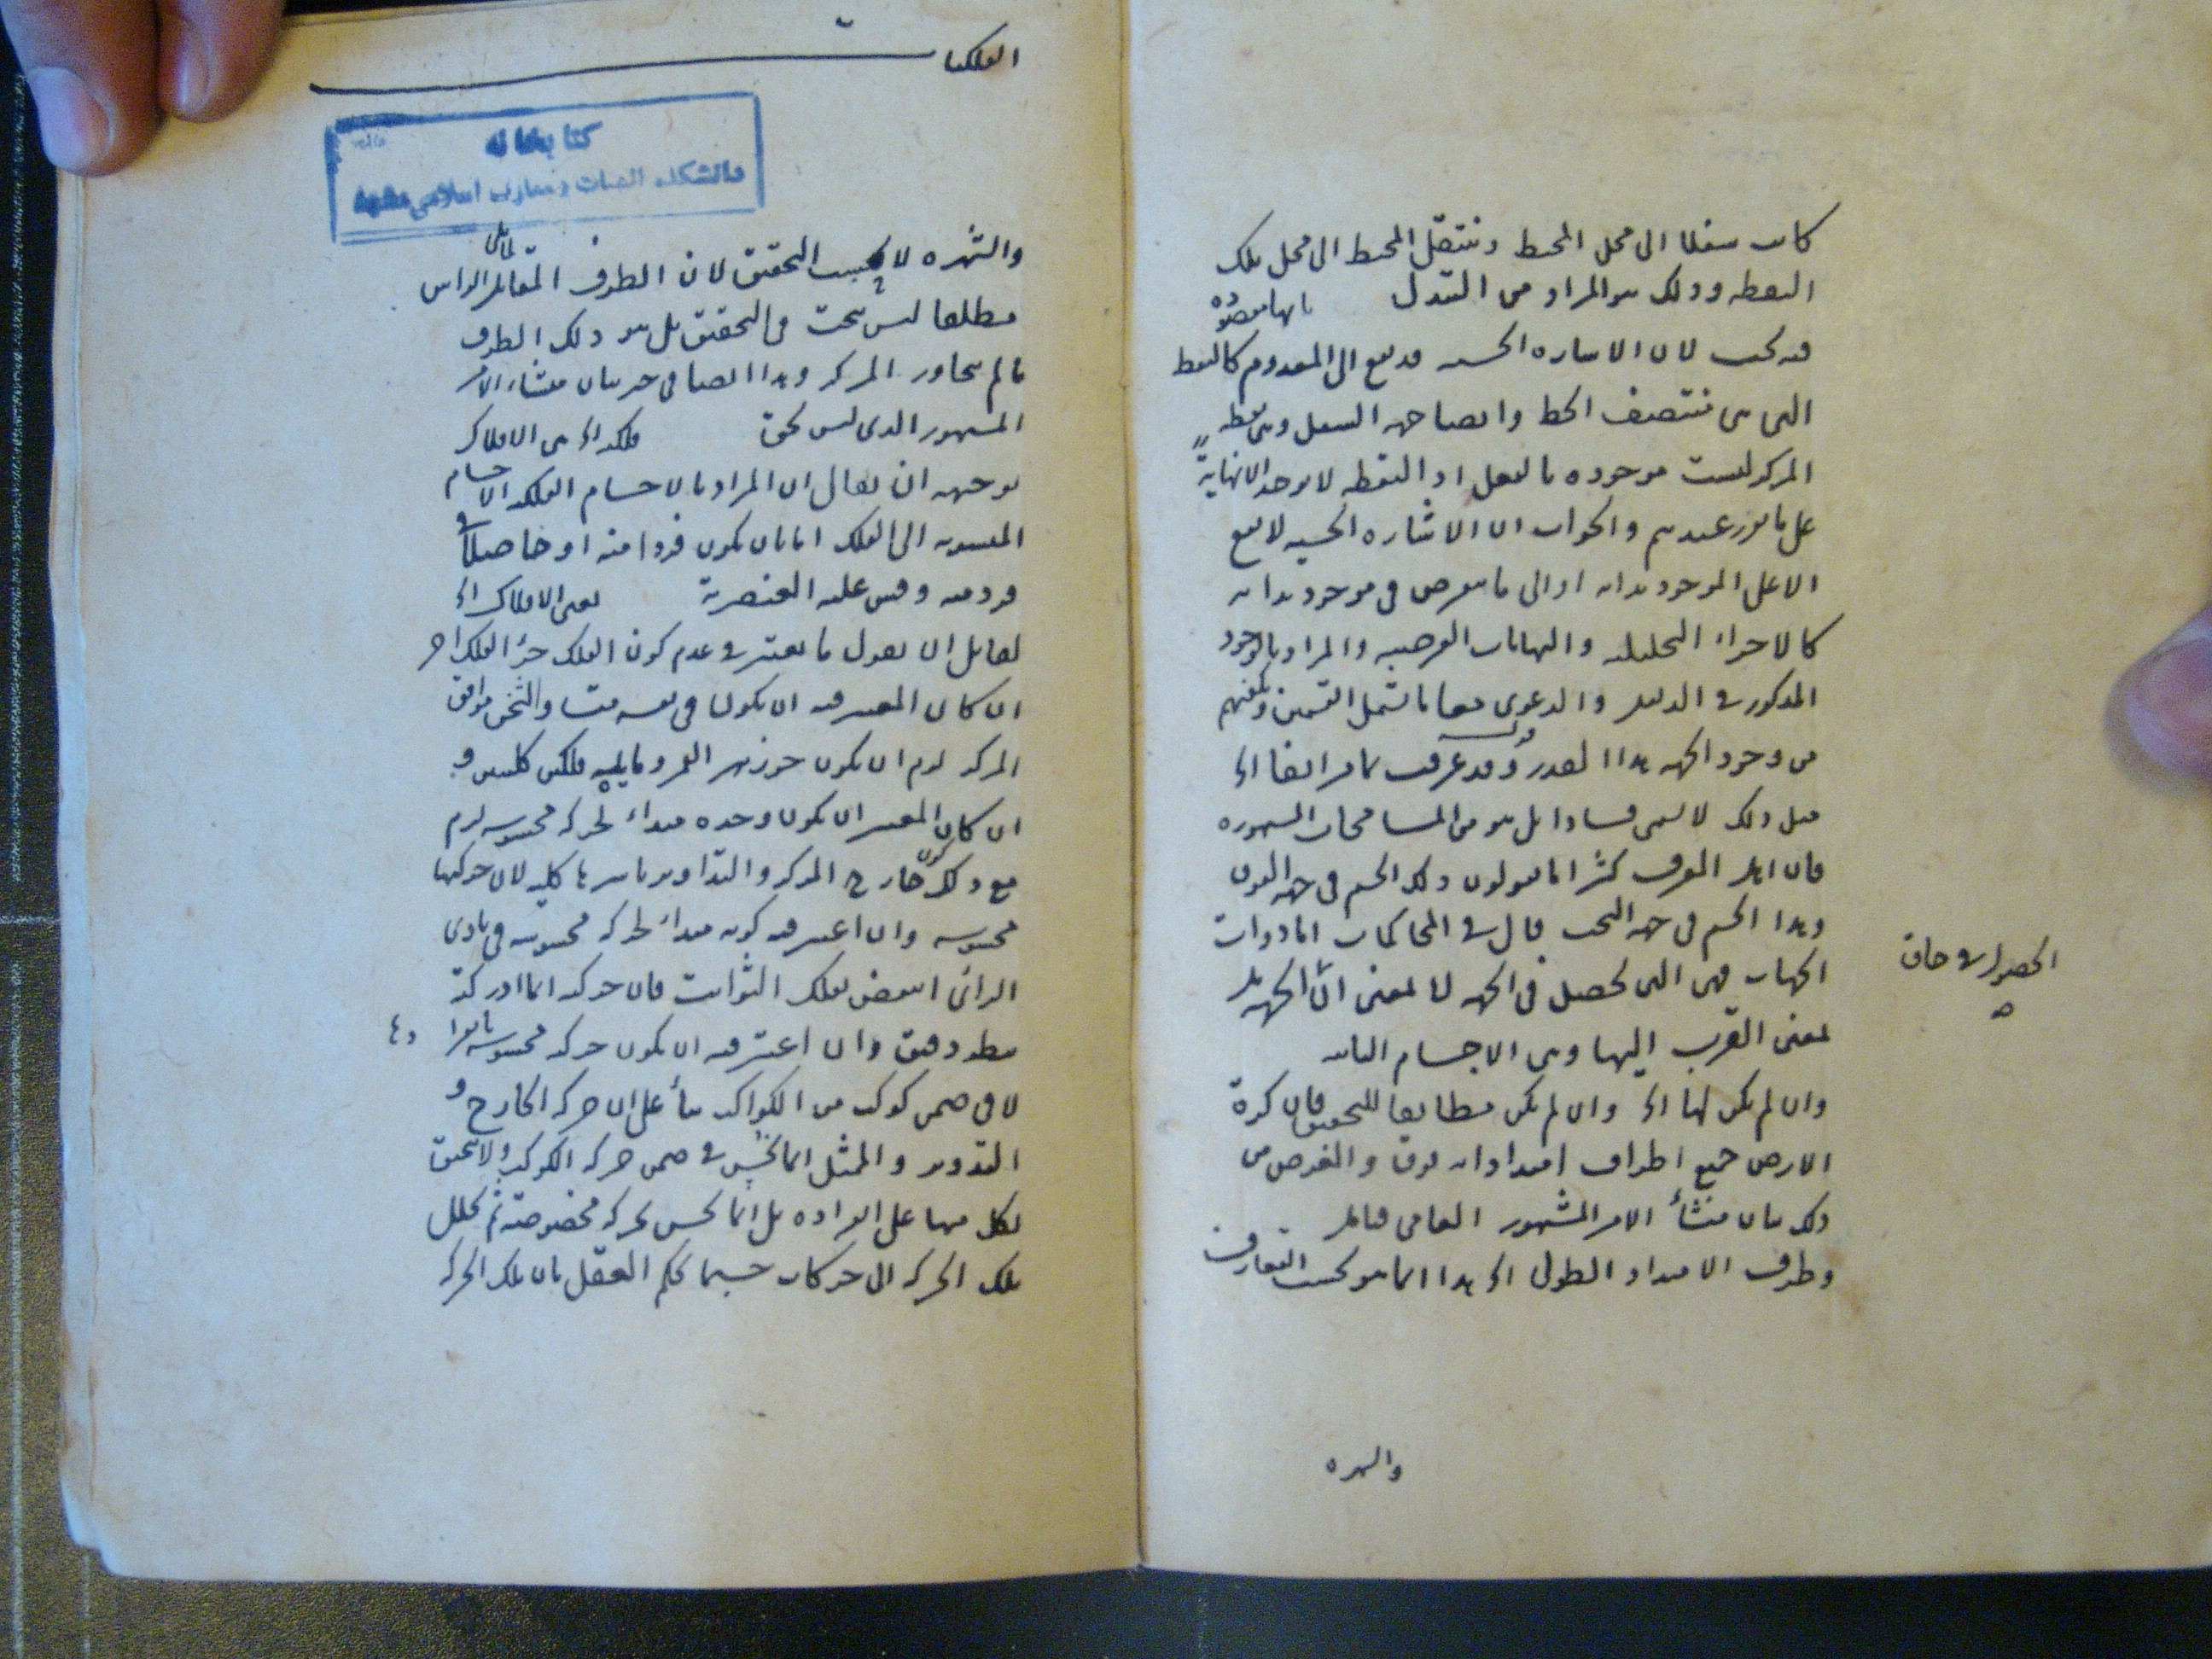 كانت سفلا الى محل المحيط وينتقل المحيط الى محل تلك
النقطة وذلك هو المراد من التبدل بانها مقصودة
فيه بحث لان الاشارة الحسية قد تقع الى المعدوم كالنقطة
التى هى منتصف الخط وايضا جهة السفل وهى نقطة
المركز ليست موجودة بالفعل اذ النقطة لا توجد الا نهاية
على ما تقرر عندهم والجواب ان الاشارة الحسية لا تقع
الا على الموجود بذاته او الى ما يفرض فى موجود بذاته
كالاجزاء التحليلية والنهايات الفرضية والمراد بالوجود
المذكور فى الدليل والدعوى معا ما يشمل القسمين
من وجود الجهة هذا القدر وقد عرفت مما مر انفا ان
مثل ذلك لا يسمى فسادا بل هو من المسامحات المشهورة
فان اهل العرف كثيرا ما يقولون ذلك الجسم فى جهة الفوق
وهذا الجسم فى جهة التحت قال فى المحاكمات اما ذوات
الجهات فهى التى تحصل فى الجهة لا بمعنى ان الجهة بل
بمعنى القرب اليها وهى الاجسام
وان لم يكن لها الخ وان لم يكن مطابقا للتحقيق فان كرة
الارض جميع اطراف امتداداته فوق والغرض من
ذلك بيان منشأ الامر المشهور العامى
وطرف الامتداد الطولى الخ هذا انما هو بحسب التعارف
والشهرة
الفلكيات
كتابخانه
دانشكده الهيات و معارف اسلامى مشهد
والشهرة لا بحسب التحقيق لان الطرف المقابل للراس
مطلقا ليس بتحت فى التحقيق بل هو ذلك الطرف
ما لم يجاوز المركز وهذا ايضا فى حيز بيان منشاء الامر
المشهور الذى ليس بحق فلكية الخ من الافلاك
توجيهه ان يقال ان المراد بالاجسام الفلكية الاجسام
المنسوبة الى الفلك اما بان يكون فردا منه او حاصلا فى
فرد منه وقس عليه العنصرية يعنى الافلاك الخ
لقائل ان يقول ما يعتبر فى عدم كون الفلك جزء الفلك اخر
ان كان المعتبر فيه ان يكون فى نفسه متشا والثخن موافق
المركز لزم ان يكون جوزهر القمر ومايليه فلكين كليين و
ان كان المعتبر ان يكون وحده مبداء لحركة محسوسة لزم
مع ذلك كون خارج المركز والتداوير باسرها كلية لان حركتها
محسوسة وان اعتبر فيه كونه مبداء لحركة محسوسة فى بادى
الرائى انتقض بفلك الثوابت فان حركته انما ادركت
بنظر دقيق وان اعتبر فيه ان يكون حركته محسوسة بانفرادها
لا فى ضمن كوكب من الكواكب بناء على ان حركة الخارج و
التدوير والممثل انما يحس فى ضمن حركة الكوكب ولا يتحقق
لكل منها على انفراده بل انما يحس بحركة مخصوصة ثم يحلل
تلك الحركة الى حركات حسبما يحكم العقل بان تلك الحركة